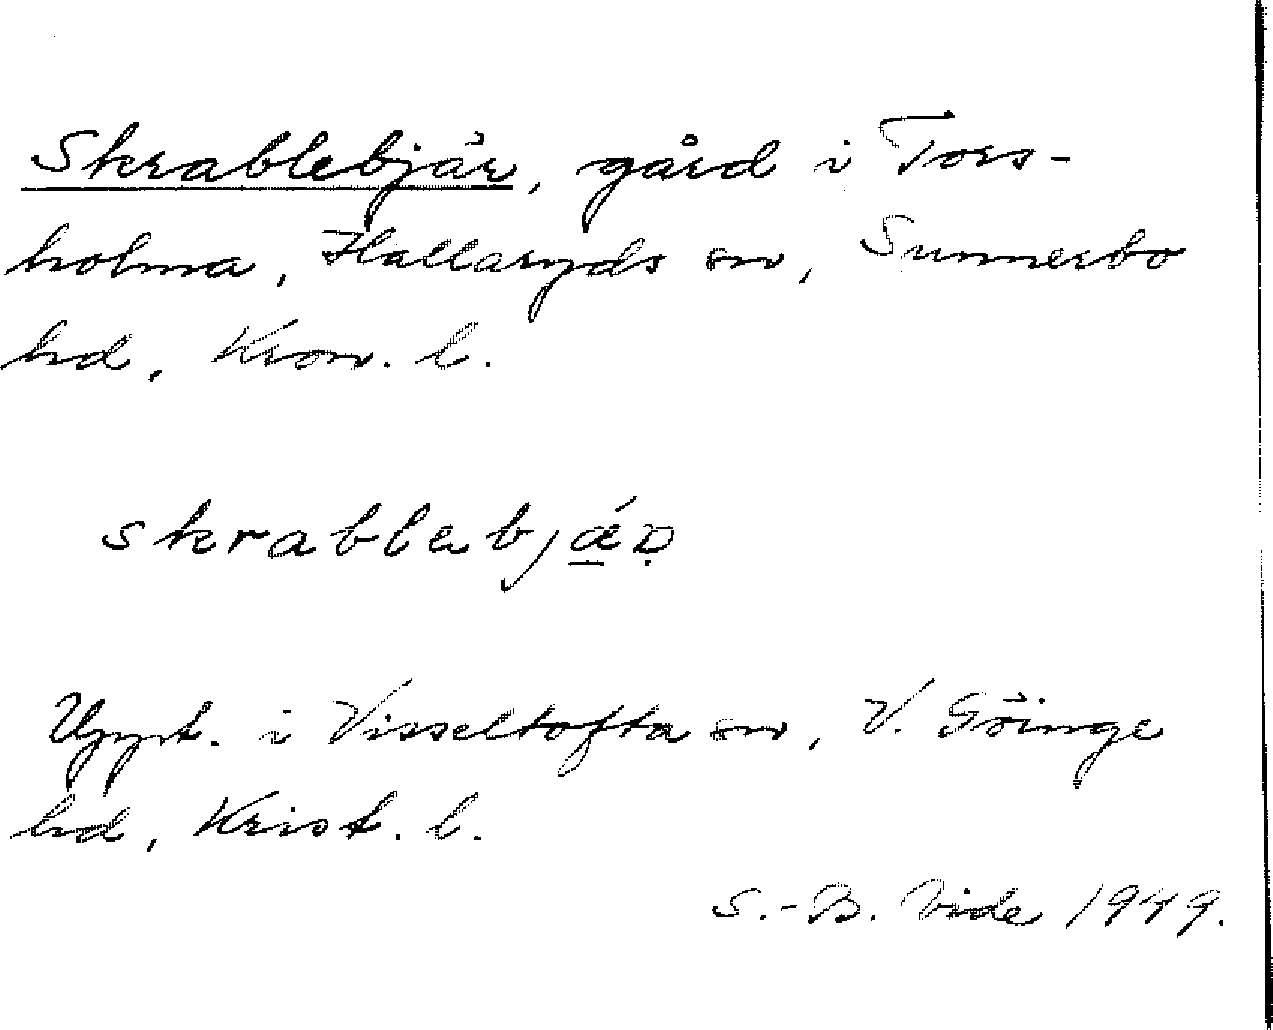 Skrablebjär, gård i Tors-
holma, Hallaryds sn, Sunnerbo
hd, Kron. l.
skrablebjǽꭰ̣
Uppt. i Visseltofta sn, V. Göinge
hd, Krist. l.
S.-B. Vide 1949.